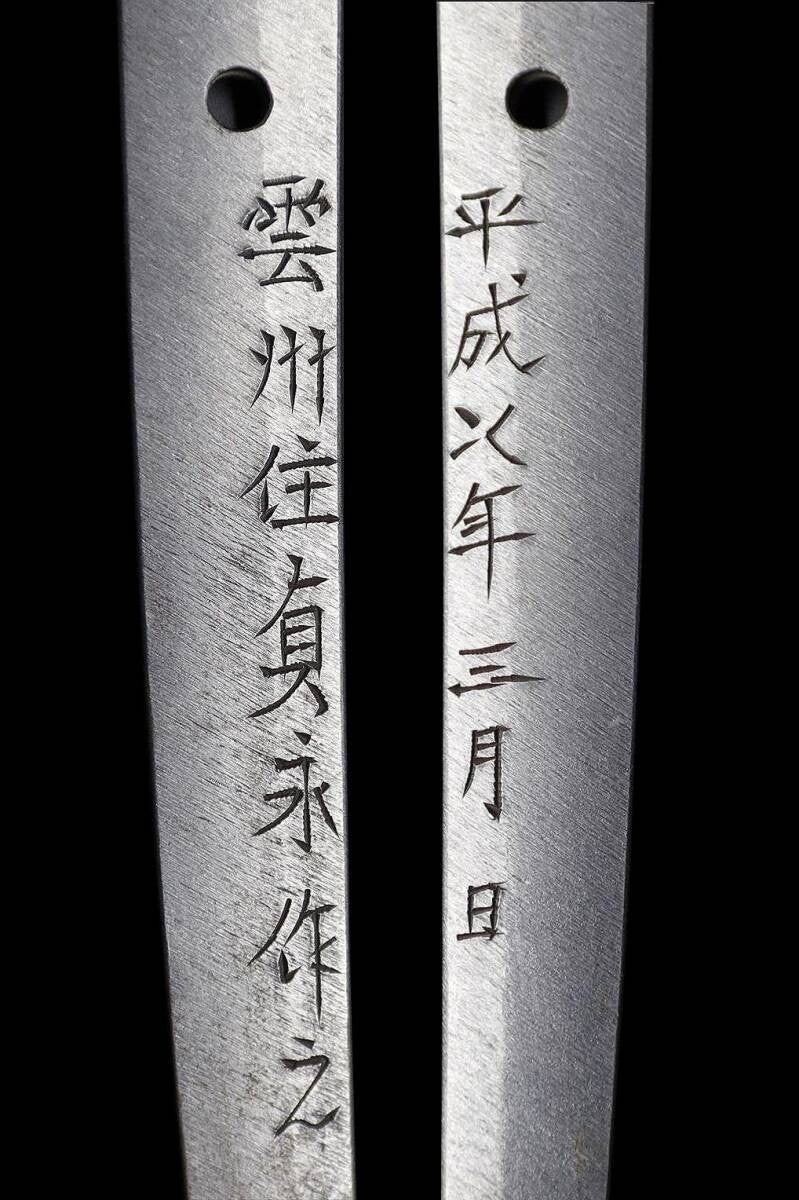 雲州住貞永作之
平成年三月日